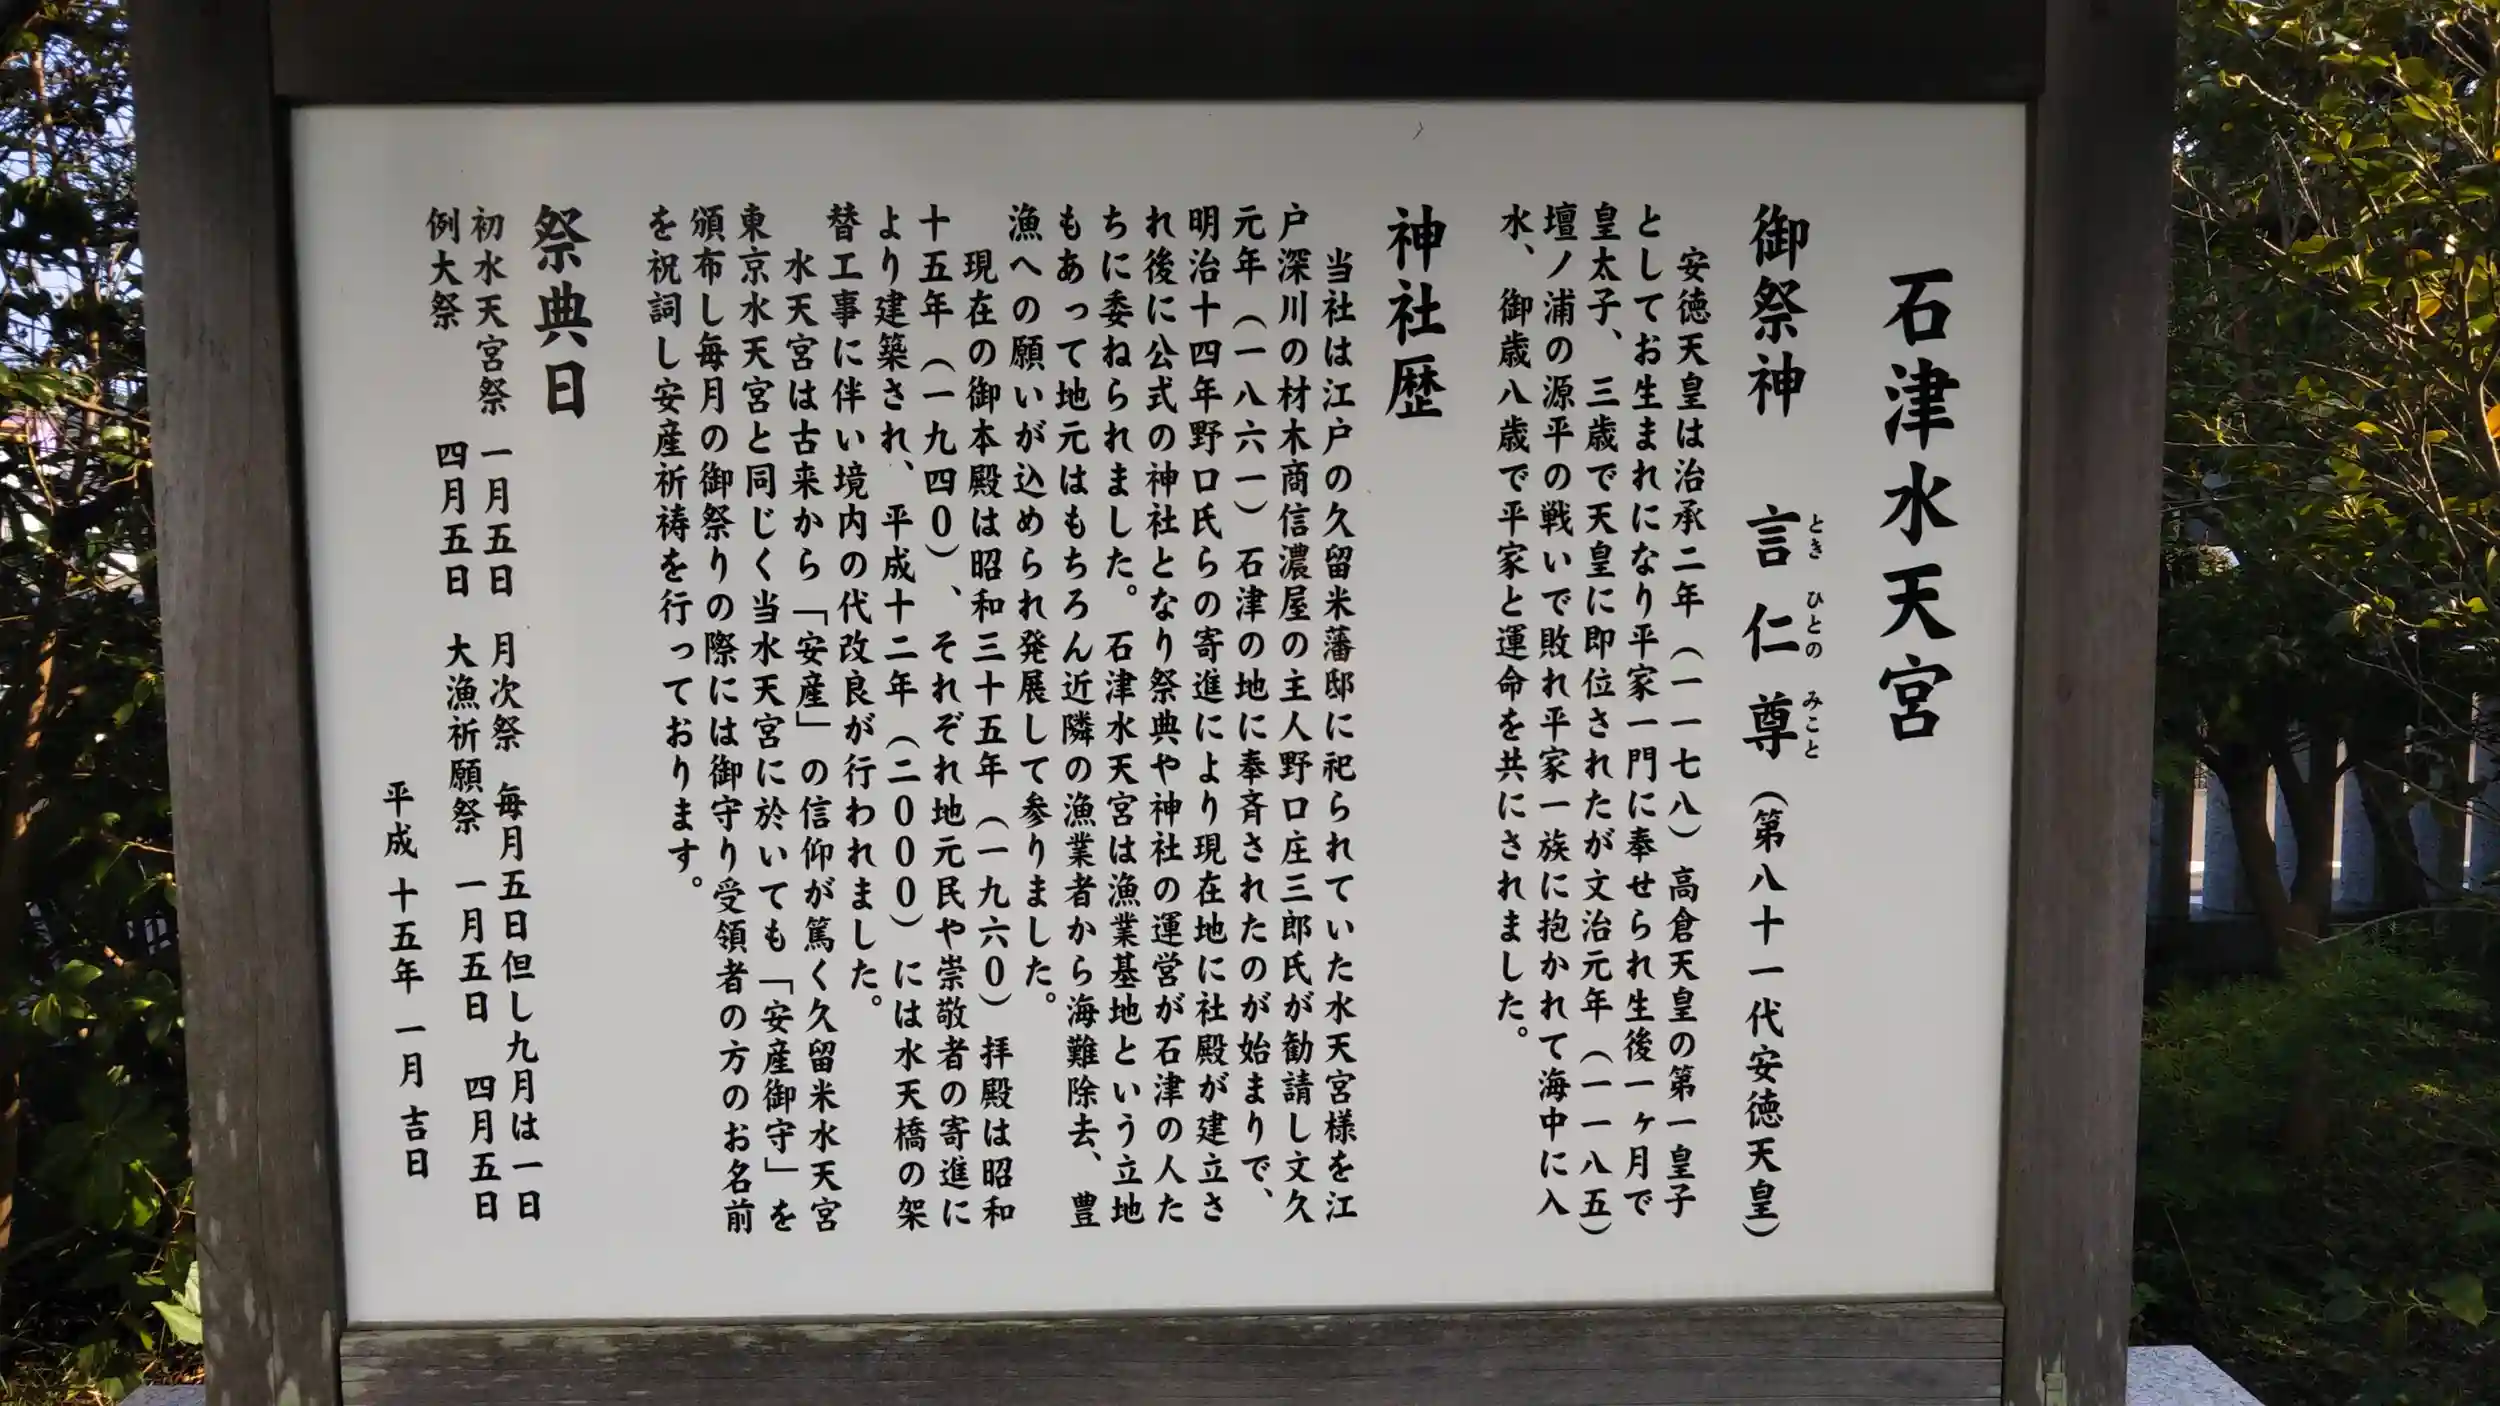 石津水天宮
御祭神 言仁尊（第八十一代安徳天皇）
とき ひとの みこと
安徳天皇は治承二年（一一七八）高倉天皇の第一皇子
としてお生まれになり平家一門に奉せられ生後一ヶ月で
皇太子、三歳で天皇に即位されたが文治元年（一一八五）
壇ノ浦の源平の戦いで敗れ平家一族に抱かれて海中に入
水、御歳八歳で平家と運命を共にされました。
神社歴
当社は江戸の久留米藩邸に祀られていた水天宮様を江
戸深川の材木商信濃屋の主人野口庄三郎氏が勧請し文久
元年（一八六一）石津の地に奉斉されたのが始まりで、
明治十四年野口氏らの寄進により現在地に社殿が建立さ
れ後に公式の神社となり祭典や神社の運営が石津の人た
ちに委ねられました。石津水天宮は漁業基地という立地
もあって地元はもちろん近隣の漁業者から海難除去、豊
漁への願いが込められ発展して参りました。
現在の御本殿は昭和三十五年（一九六０）拝殿は昭和
十五年（一九四０）、それぞれ地元民や崇敬者の寄進に
より建築され、平成十二年（二０００）には水天橋の架
替工事に伴い境内の代改良が行われました。
水天宮は古来から「安産」の信仰が篤く久留米水天宮
東京水天宮と同じく当水天宮に於いても「安産御守」を
頒布し毎月の御祭りの際には御守り受領者の方のお名前
を祝詞し安産祈祷を行っております。
祭典日
初水天宮祭 一月五日 月次祭 毎月五日但し九月は一日
例大祭 四月五日 大漁祈願祭 一月五日 四月五日
平成十五年一月吉日